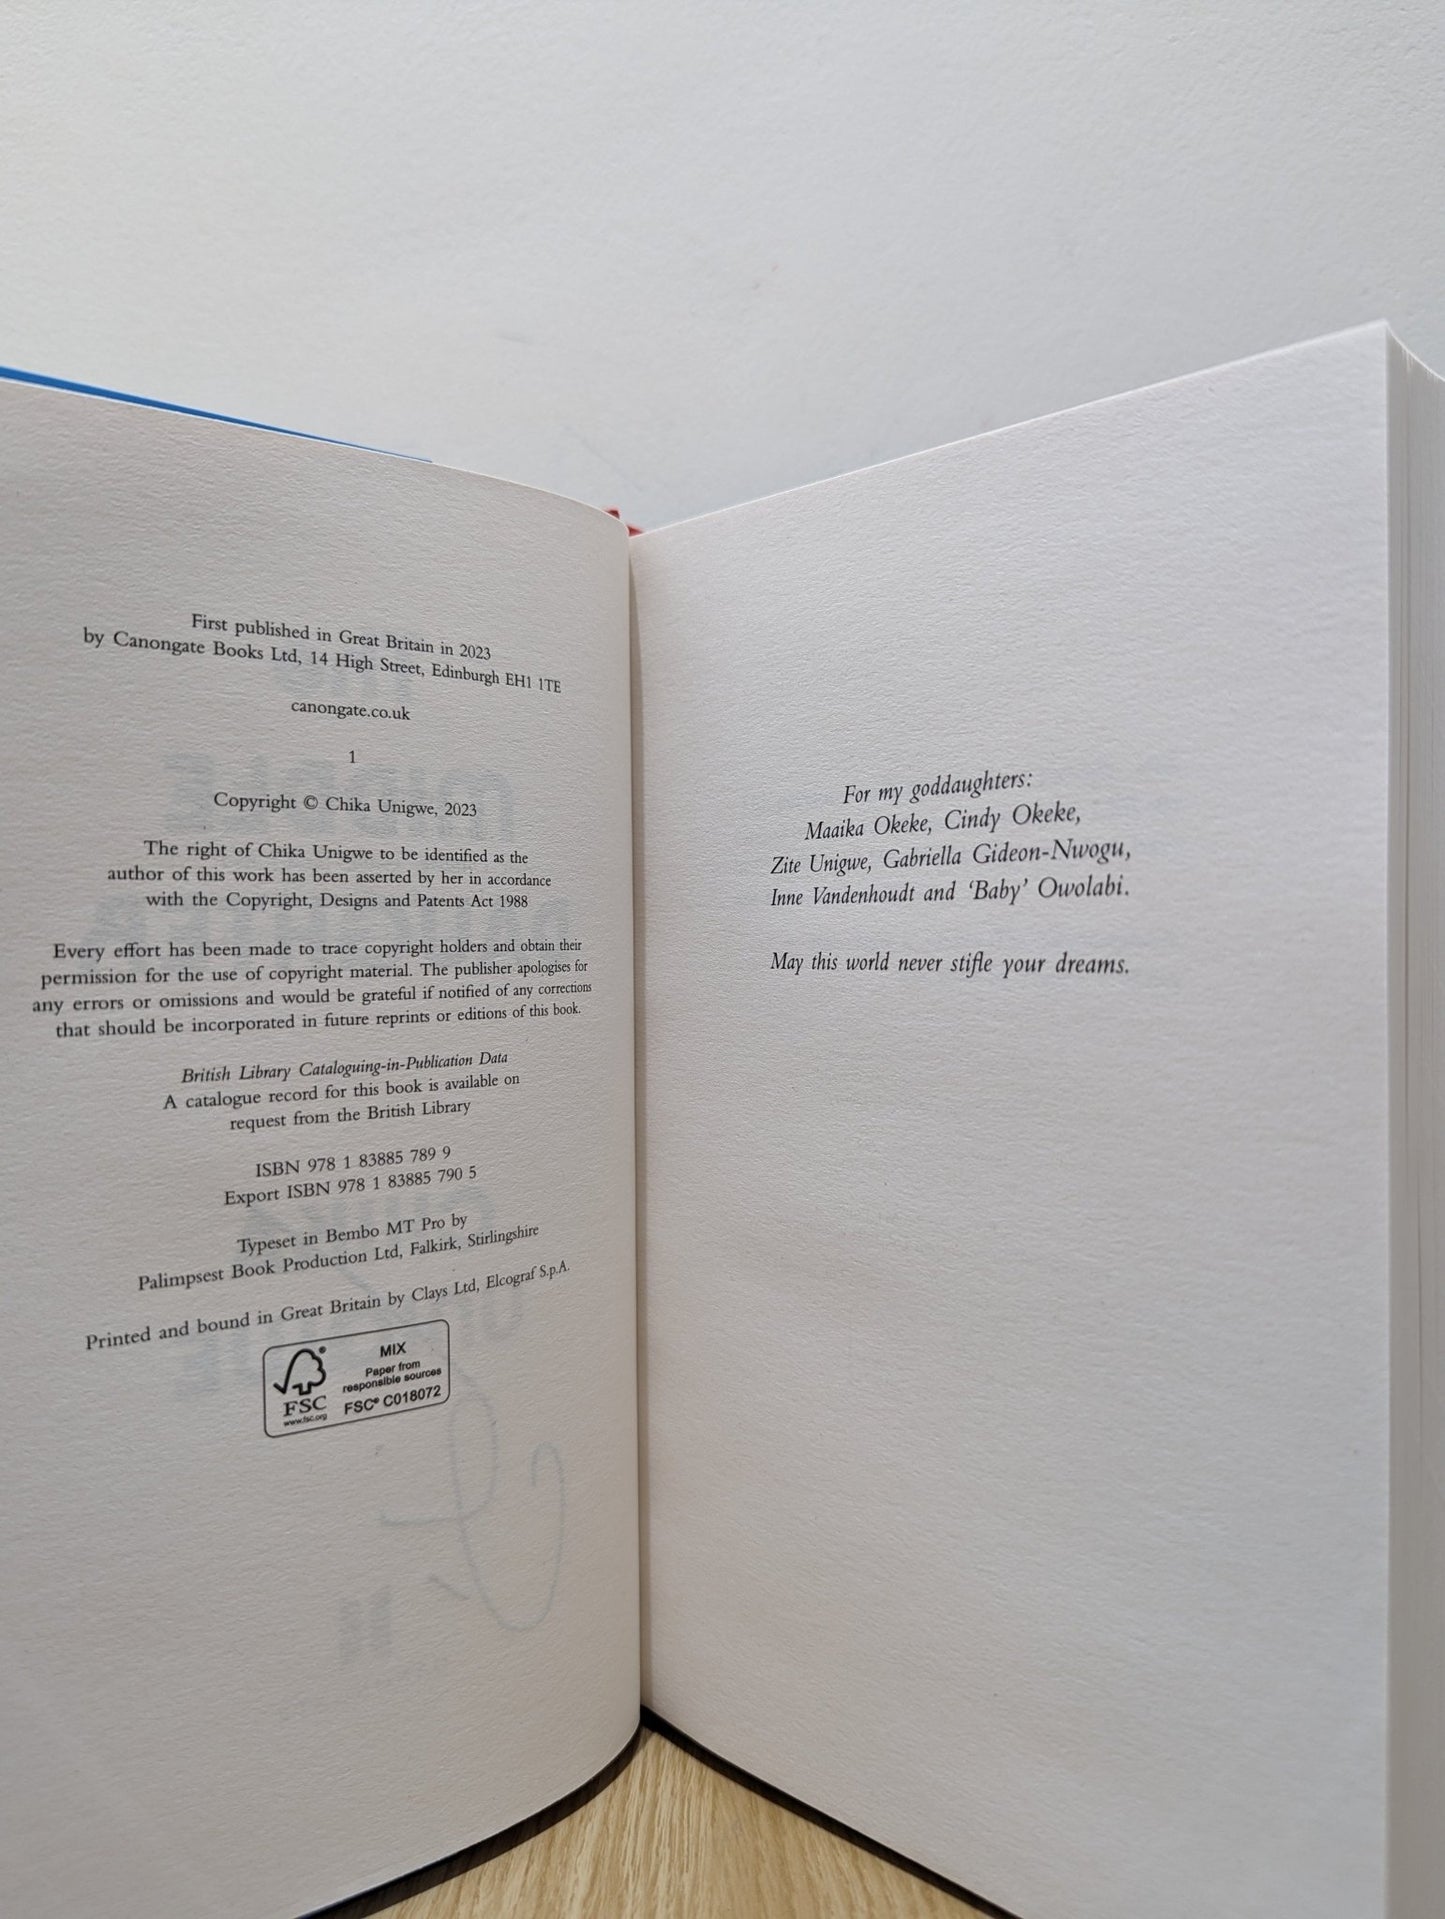 First published in Great Britain in 2023
by Canongate Books Ltd, 14 High Street, Edinburgh EH1 1TE
canongate.co.uk
1
Copyright © Chika Unigwe, 2023
The right of Chika Unigwe to be identified as the
author of this work has been asserted by her in accordance
with the Copyright, Designs and Patents Act 1988
Every effort has been made to trace copyright holders and obtain their
permission for the use of copyright material. The publisher apologises for
any errors or omissions and would be grateful if notified of any corrections
that should be incorporated in future reprints or editions of this book.
British Library Cataloguing-in-Publication Data
A catalogue record for this book is available on
request from the British Library
ISBN 978 1 83885 789 9
Export ISBN 978 1 83885 790 5
Typeset in Bembo MT Pro by
Palimpsest Book Production Ltd, Falkirk, Stirlingshire
Printed and bound in Great Britain by Clays Ltd, Elcograf S.p.A.
®
FSC
www.fsc.org
MIX
Paper from
responsible sources
FSC® C018072
For my goddaughters:
Maaika Okeke, Cindy Okeke,
Zite Unigwe, Gabriella Gideon-Nwogu,
Inne Vandenhoudt and ‘Baby’ Owolabi.
May this world never stifle your dreams.